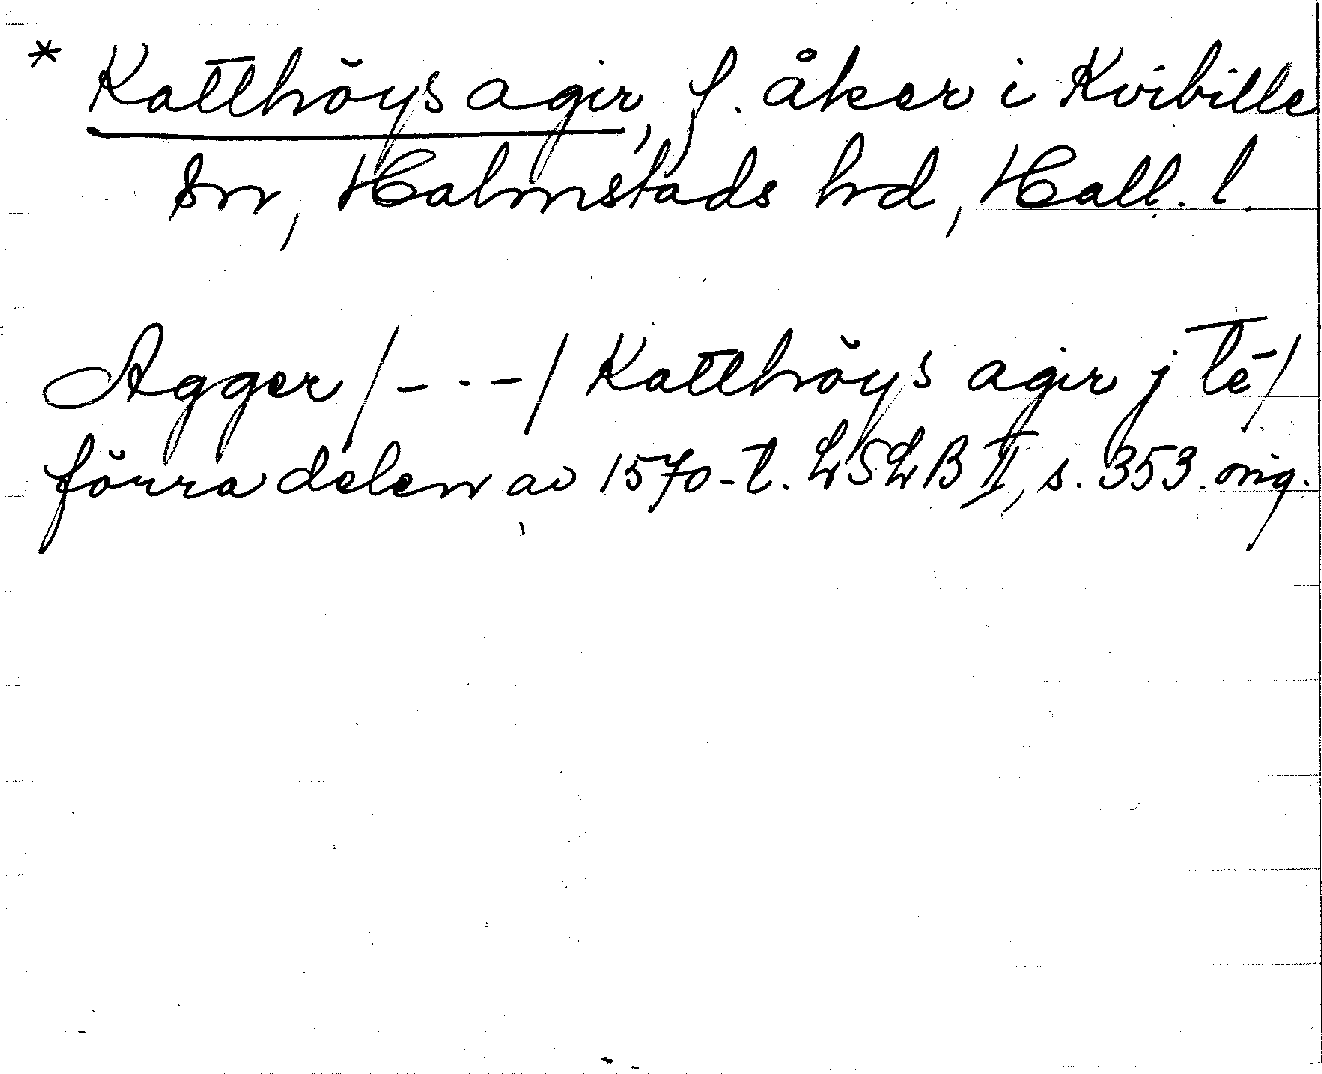 * Katthöys agir, f. åker i Kvibille
sn, Halmstads hrd, Hall. l.
Agger /-·-/ Katthöys agir j Té/
förra delen av 1570-t. LSLB II, s. 353. orig.